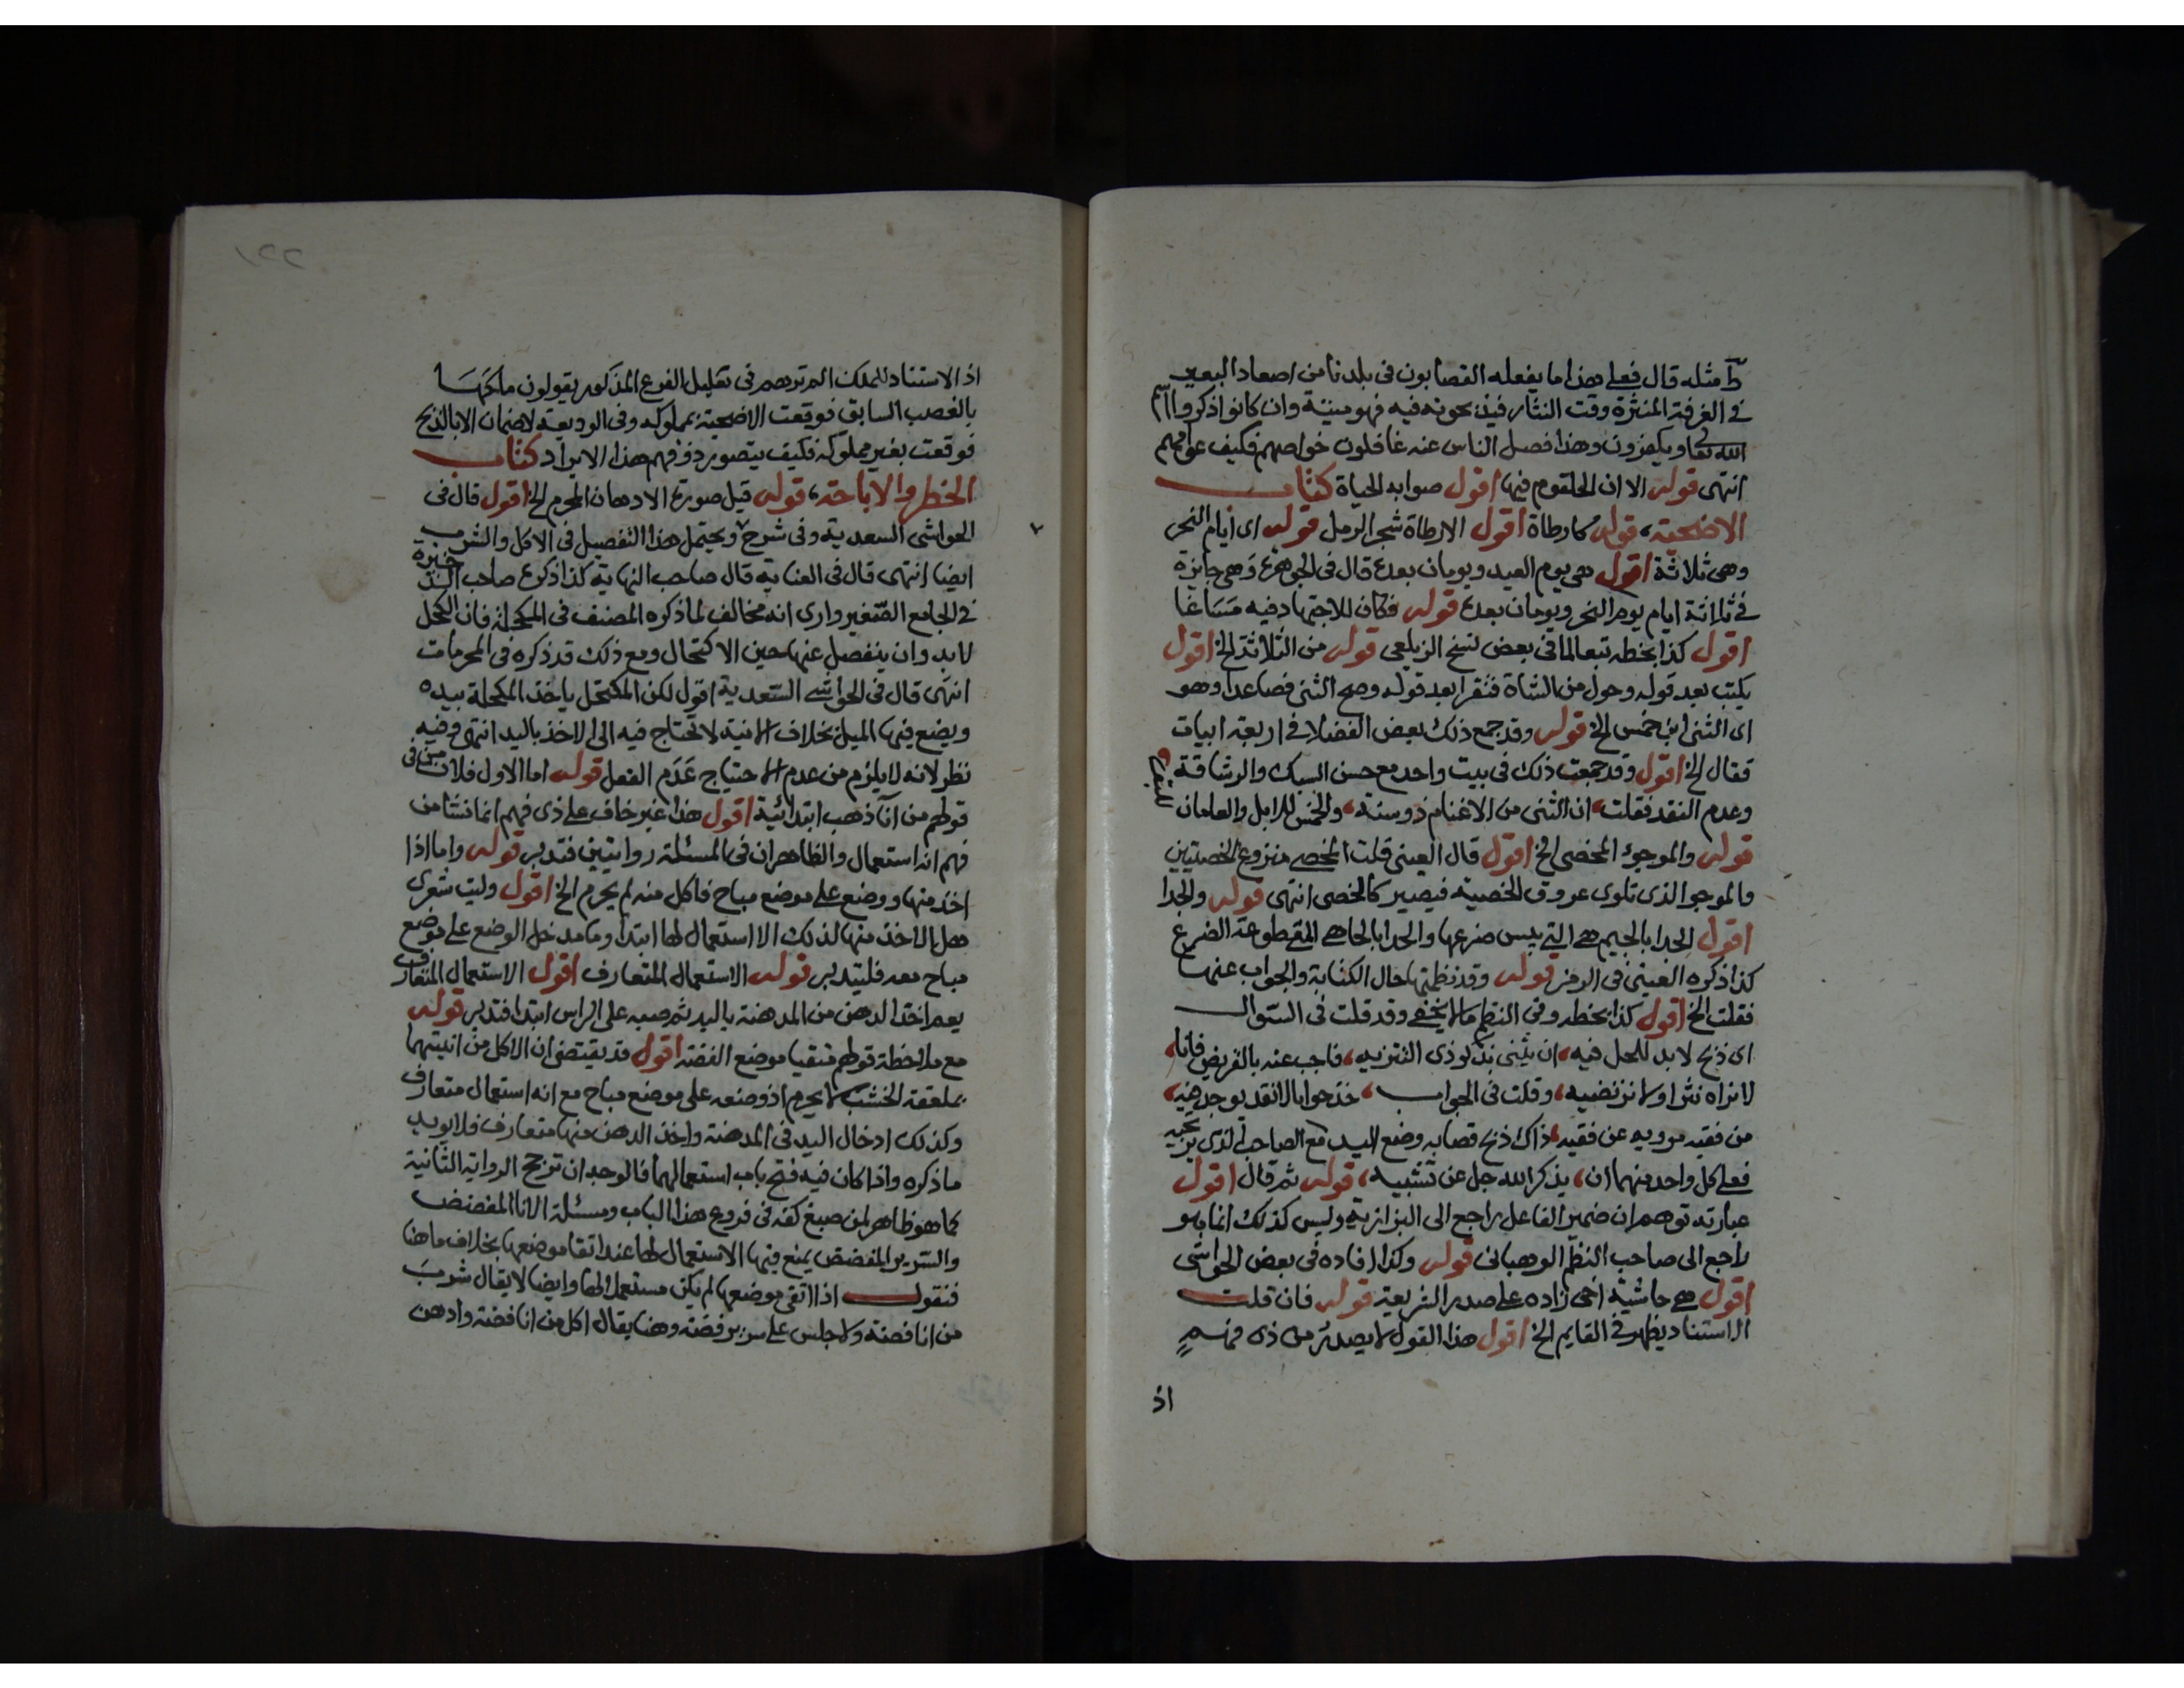 مثله قال فعلى هذا ما يفعله القصابون فى بلدنا من اصعاد البعير
فى الغرفة المنثرة وقت النثار فيذبحونه فيه فهو ميتة وان كانوا ذكروا اسم
الله تعا ويكفرون وهذا فصل الناس عنه غافلون خواصهم فكيف عوامهم
انتهى قوله الا ان الحلقوم فيها اقول صوابه الحياة كتاب
الاضحية، قوله كارطاة اقول الارطاة شجر الرمل قوله اى ايام النحر
وهى ثلاثة اقول هى يوم العيد ويومان بعده قال فى الجوهرة وهى جايزة
فى ثلاثة ايام يوم النحر ويومان بعده قوله فكان للاجتهاد فيه مساغا
اقول كذا بخطه تبعا لما فى بعض نسخ الزيلعى قوله من الثلاثة الخ اقول
يكتب بعد قوله وحول من الشاة فتقرا بعد قوله وصح الثنى فصاعدا وهو
اى الثنى ابن خمس الخ قوله وقد جمع ذلك بعض الفضلا فى اربعة ابيات
فقال الخ اقول وقد جمعت ذلك فى بيت واحد مع حسن السبك والرشاقة
وعدم النقد فقلت، ان الثنى من الاغنام ذو سنة، والخمس للابل والعامان للبقرة
قوله والموجوء المخصى الخ اقول قال العينى قلت الخصى منزوع الخصيتين
والموجو الذى تلوى عروق الخصية فيصير كالخصى انتهى قوله والجدا
اقول الجدا بالجيم هى التى يبس ضرعها والحدا بالحا هى المقطوعة الضرع
كذا ذكره العينى فى الرمز قوله وقد نظمتها حال الكتابة والجواب عنها
فقلت الخ اقول كذا بخطه وفى النظم ما لا يخفى وقد قلت فى السوال
اى ذبح لابد للحل فيه، ان يثنى بذكر ذى التنزيه، فاجب عنه بالقريض فانا،
لا نراه نثرا ولا نرتضيه، وقلت فى الجواب، خذ جوابا لا نقد يوجد فيه،
من فقيه مرويه عن فقيه، ذاك ذبح قصابه وضع اليد مع الصاحب الذى
فعلى كل واحد منهما ان، يذكر الله جل عن تشبيه، قوله ثم قال اقول
عبارته توهم ان ضمير الفاعل راجع الى البزازية وليس كذلك انما هو
راجع الى صاحب النظم الوهبانى قوله وكذا افاده فى بعض الحواشى
اقول هى حاشية اخى زاده على صدر الشريعة قوله فان قلت
الاستناد يظهر فى القايم الخ اقول هذا القول لا يصدر من ذى فهم
اذ
٢٢١
اذ الاستناد للملك الم ترهم فى تعليل الفرع المذكور يقولون ملكها
بالغصب السابق فوقعت الاضحية بمملوكه وفى الوديعة لا ضمان الا بالذبح
فوقعت بغير مملوكه فكيف يتصور ذو فهم هذا الايراد كتاب
الحظر والاباحة، قوله قيل صورة الادهان المحرم الخ اقول قال فى
الحواشى السعدية وفى شرح ويحتمل هذا التفصيل فى الاكل والشرب
ايضا انتهى قال فى العناية قال صاحب النهاية كذا ذكره صاحب الذخيرة
فى الجامع الصغير وارى انه مخالف لما ذكره المصنف فى المكحلة فان الكحل
لابد وان ينفصل عنها حين الاكتحال ومع ذلك قد ذكره فى المحرمات
انتهى قال فى الحواشى السعدية اقول لكن المكتحل ياخذ المكحلة بيده
ويضع فيها الميل بخلاف الانية لا تحتاج فيه الى الاخذ باليد انتهى وفيه
نظر لانه لا يلزم من عدم الاحتياج عدم الفعل قوله اما الاول فلان من فى
قولهم من انا ذهب ابتدائية اقول هذا غير خاف على ذى فهم انما نشا من
فهم انه استعمال والظاهر ان فى المسئلة روايتين فتدبر قوله واما اذا
اخذ منها ووضع على موضع مباح فاكل منه لم يحرم الخ اقول وليت شعرى
هل الاخذ منها لذلك الا استعمال لها ابتدا وما مدخل الوضع على موضع
مباح معه فليتدبر قوله الاستعمال المتعارف اقول الاستعمال المتعارف
يعم اخذ الدهن من المدهنة باليد ثم صبه على الراس ابتدا فتدبر قوله
مع ملاحظة قولهم متقيا موضع الفضة اقول قد يقتضى ان الاكل من انيتهما
بملعقة الخشب لا يحرم اذ وضعه على موضع مباح مع انه استعمال متعارف
وكذلك ادخال اليد فى المدهنة واخذ الدهن منها متعارف فلا يويد
ما ذكره واذا كان فيه فتح باب استعمالهما فالوجه ان ترجح الرواية الثانية
كما هو ظاهر لمن صبغ كفه فى فروع هذا الباب ومسئلة الانا المفضض
والسرير المفضض يمنع فيها الاستعمال لها عند اتقا موضعها بخلاف ما هنا
فنقول اذا اتقى موضعها لم يكن مستعملا لها وايضا لا يقال شرب
من انا فضة ولا جلس على سرير فضة وهنا يقال اكل من انا فضة وادهن